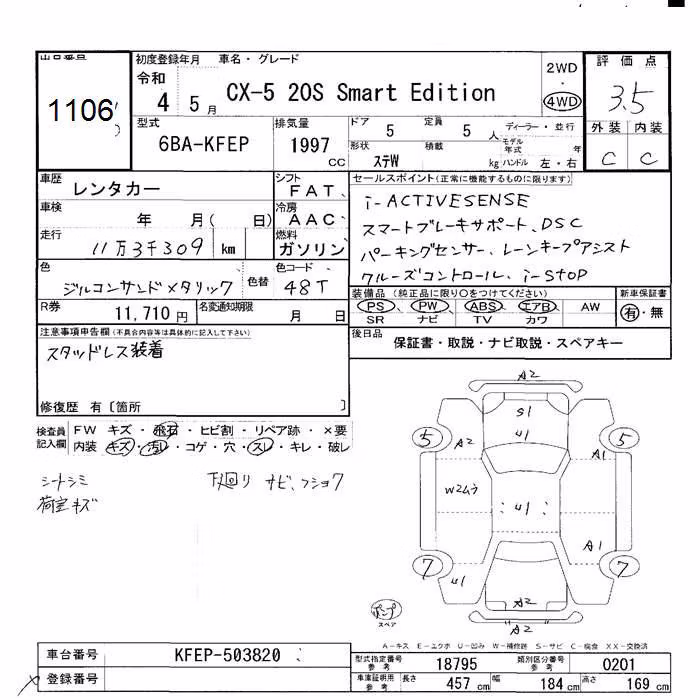 出品番号
1106
初度登録年月
車名・グレード
令和
4 5月
CX-5 20S Smart Edition
2WD
・
4WD
評価点
3.5
外装 内装
C C
型式
6BA-KFEP
排気量
1997
CC
ドア
5
定員
5
人
形状
ステW
積載
kg
ディーラー・並行
モデル年式
年
ハンドル 左・右
車歴
レンタカー
シフト
FAT
車検
年 月( 日)
冷房
AAC
走行
11万3千309 km
燃料
ガソリン
色
ジルコンサンドメタリック
色替
色コード
48T
R券
11,710円
名変通知期限
月 日
セールスポイント(正常に機能するものに限ります)
i-ACTIVESENSE
スマートブレーキサポート、DSC
パーキングセンサー、レーンキープアシスト
クルーズコントロール、i-stop
装備品(純正品に限り○をつけてください)
PS、PW、ABS、エアB、AW
SR ナビ TV カワ
新車保証書
有・無
後日品
保証書・取説・ナビ取説・スペアキー
注意事項申告欄(不具合内容等は具体的に記入して下さい)
スタッドレス装着
修復歴 有〔箇所 〕
検査員記入欄
FW キズ・飛石・ヒビ割・リペア跡・×要
内装 キズ・汚れ・コゲ・穴・スレ・キレ・破レ
シートシミ
荷室キズ
下廻り サビ、フショク
A2
S1
U1
5
5
A2
A1
W2ムラ
U1
A1
7
7
U1
A2
"A2"
パンプ
スペア
A-キズ E-エクボ U-凹み W-補修跡 S-サビ C-腐食 XX-交換済
車台番号
KFEP-503820
登録番号
型式指定番号
参考
18795
類別区分番号
参考
0201
車庫証明用
参考
長さ
457 cm
幅
184 cm
高さ
169 cm